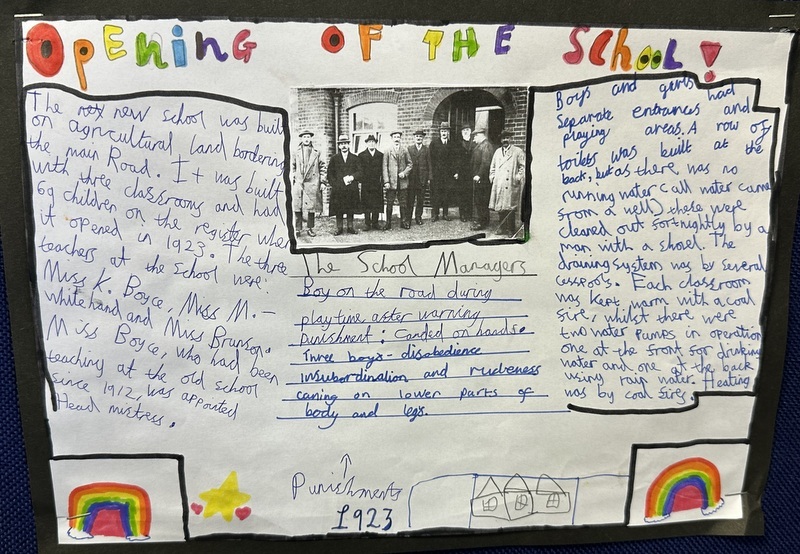 OPENiNG OF THE SCHOOL!
The new school was built
on agricultural land bordering
the main Road. It was built
with three classrooms and had
69 children on the register when
it opened in 1923. The three
teachers at the school were:
Miss K. Boyce, Miss M. -
whitehand and Miss Brunson.
Miss Boyce, who had been
teaching at the old school
since 1912, was appouted
Head mistress.
The School Managers
Boy on the road during
playtime after warning
Punishment: Canded on hands.
Three boys - disobedience
insubordination and rudeness
caning on lower parts of
body and legs.
↑
Punishments
1923
Boys and girls had
Separate entrances and
playing areas. A row of
toilets was built at the
back, but as there, was no
running water (all water came
from a well) these were
cleared out fortnightly by a
man with a shovel. The
draining system was by several
cesspools. Each classroom
was kept warm with a coal
fire, whilst there were
two water pumps in operation
one at the front for drinking
water and one at the back
using rain water. Heating
was by coal fires.